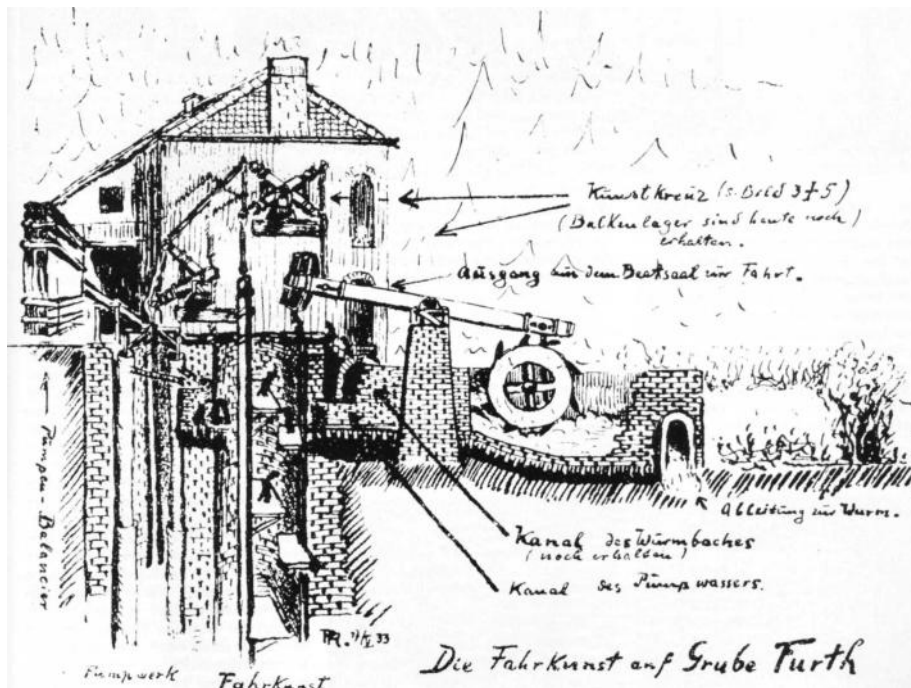 Kunstkreuz (s. Bild 3+5)
(Balkenlager sind heute noch)
erhalten.
Ausgang aus dem Beetsaal zur Fahrt.
Pumpen-Balancier
Ableitung zur Wurm.
Kanal des Wurmbaches
(noch erhalten)
Kanal des Pumpwassers.
33
Die Fahrkunst auf Grube Furth
Pumpwerk
Fahrkunst